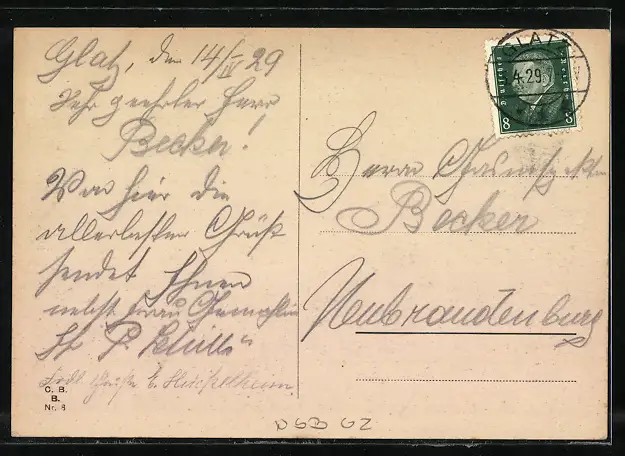 Glatz, den 14/IV 29
Sehr geehrter Herr
Becker!
Von hier die
allerbesten Grüße
sendet Ihnen
nebst Frau Gemahlin
P.
C. B.
B.
Nr. 8
GLATZ
4.29.
Deutsches Reich
8 8
Herrn
Becker
Neubrandenburg
DGB GZ